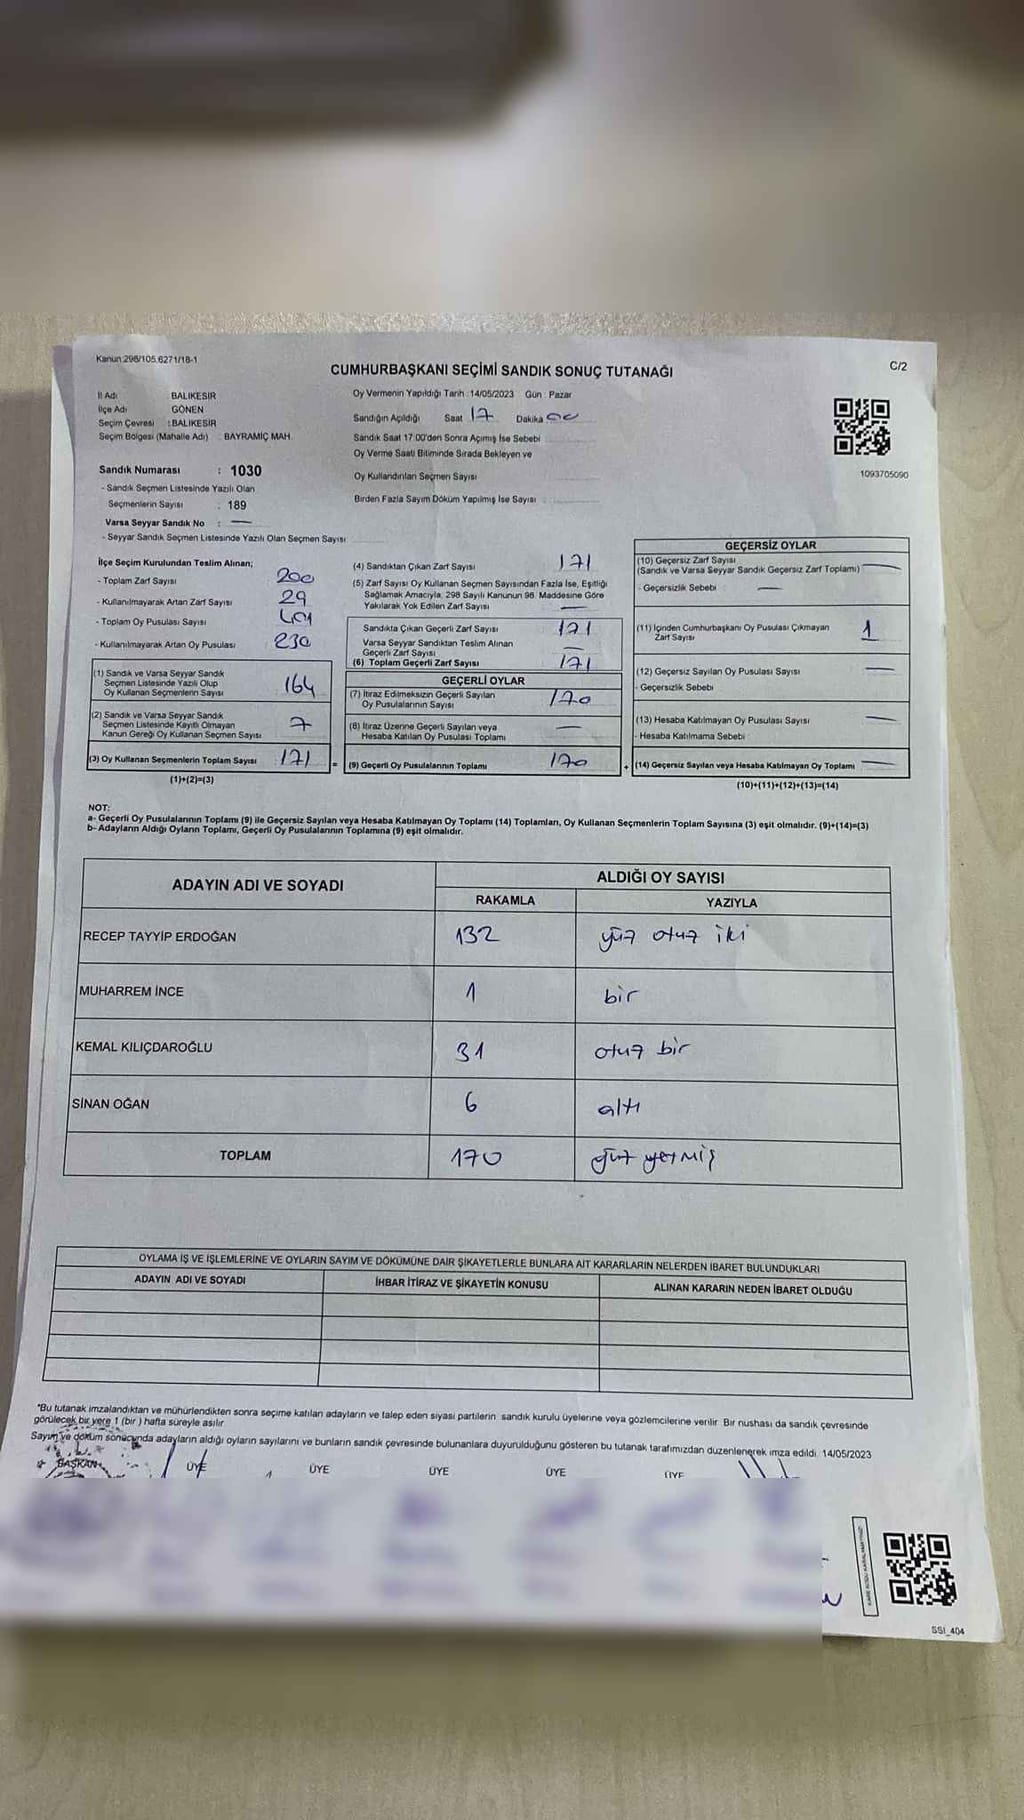 Kanun:298/105.6271/18-1
CUMHURBAŞKANI SEÇİMİ SANDIK SONUÇ TUTANAĞI
C/2
İl Adı BALIKESİR
İlçe Adı GÖNEN
Seçim Çevresi : BALIKESİR
Seçim Bölgesi (Mahalle Adı) BAYRAMİÇ MAH.
Oy Vermenin Yapıldığı Tarih :14/05/2023 Gün : Pazar
Sandığın Açıldığı Saat 17 Dakika 00
Sandık Saat 17:00'den Sonra Açımış İse Sebebi
Oy Verme Saati Bitiminde Sırada Bekleyen ve
Oy Kullandırılan Seçmen Sayısı
Birden Fazla Sayım Döküm Yapılmış İse Sayısı
1093705090
Sandık Numarası : 1030
- Sandık Seçmen Listesinde Yazılı Olan
Seçmenlerin Sayısı : 189
Varsa Seyyar Sandık No : —
- Seyyar Sandık Seçmen Listesinde Yazılı Olan Seçmen Sayısı
İlçe Seçim Kurulundan Teslim Alınan;
- Toplam Zarf Sayısı 200
- Kullanılmayarak Artan Zarf Sayısı 29
- Toplam Oy Pusulası Sayısı 401
- Kullanılmayarak Artan Oy Pusulası 230
(1) Sandık ve Varsa Seyyar Sandık
Seçmen Listesinde Yazılı Olup
Oy Kullanan Seçmenlerin Sayısı 164
(2) Sandık ve Varsa Seyyar Sandık
Seçmen Listesinde Kayıtlı Olmayan
Kanun Gereği Oy Kullanan Seçmen Sayısı 7
(3) Oy Kullanan Seçmenlerin Toplam Sayısı 171
(1)+(2)=(3)
(4) Sandıktan Çıkan Zarf Sayısı 171
(5) Zarf Sayısı Oy Kullanan Seçmen Sayısından Fazla İse, Eşitliği
Sağlamak Amacıyla, 298 Sayılı Kanunun 98. Maddesine Göre
Yakılarak Yok Edilen Zarf Sayısı —
Sandıkta Çıkan Geçerli Zarf Sayısı 171
Varsa Seyyar Sandıktan Teslim Alınan
Geçerli Zarf Sayısı —
(6) Toplam Geçerli Zarf Sayısı 171
GEÇERLİ OYLAR
(7) İtiraz Edilmeksizin Geçerli Sayılan
Oy Pusulalarının Sayısı 170
(8) İtiraz Üzerine Geçerli Sayılan veya
Hesaba Katılan Oy Pusulası Toplamı —
= (9) Geçerli Oy Pusulalarının Toplamı 170
GEÇERSİZ OYLAR
(10) Geçersiz Zarf Sayısı —
(Sandık ve Varsa Seyyar Sandık Geçersiz Zarf Toplamı)
- Geçersizlik Sebebi : —
(11) İçinden Cumhurbaşkanı Oy Pusulası Çıkmayan
Zarf Sayısı 1
(12) Geçersiz Sayılan Oy Pusulası Sayısı —
- Geçersizlik Sebebi
(13) Hesaba Katılmayan Oy Pusulası Sayısı —
- Hesaba Katılmama Sebebi
+ (14) Geçersiz Sayılan veya Hesaba Katılmayan Oy Toplamı —
(10)+(11)+(12)+(13)=(14)
NOT:
a- Geçerli Oy Pusulalarının Toplamı (9) ile Geçersiz Sayılan veya Hesaba Katılmayan Oy Toplamı (14) Toplamları, Oy Kullanan Seçmenlerin Toplam Sayısına (3) eşit olmalıdır. (9)+(14)=(3)
b- Adayların Aldığı Oyların Toplamı, Geçerli Oy Pusulalarının Toplamına (9) eşit olmalıdır.
ADAYIN ADI VE SOYADI ALDIĞI OY SAYISI
RAKAMLA YAZIYLA
RECEP TAYYİP ERDOĞAN 132 yüz otuz iki
MUHARREM İNCE 1 bir
KEMAL KILIÇDAROĞLU 31 otuz bir
SİNAN OĞAN 6 altı
TOPLAM 170 yüz yetmiş
OYLAMA İŞ VE İŞLEMLERİNE VE OYLARIN SAYIM VE DÖKÜMÜNE DAİR ŞİKAYETLERLE BUNLARA AİT KARARLARIN NELERDEN İBARET BULUNDUKLARI
ADAYIN ADI VE SOYADI İHBAR İTİRAZ VE ŞİKAYETİN KONUSU ALINAN KARARIN NEDEN İBARET OLDUĞU
*Bu tutanak imzalandıktan ve mühürlendikten sonra seçime katılan adayların ve talep eden siyasi partilerin sandık kurulu üyelerine veya gözlemcilerine verilir. Bir nushası da sandık çevresinde
görülecek bir yere 1 (bir ) hafta süreyle asılır
Sayım ve döküm sonucunda adayların aldığı oyların sayılarını ve bunların sandık çevresinde bulunanlara duyurulduğunu gösteren bu tutanak tarafımızdan düzenlenerek imza edildi. 14/05/2023
BAŞKAN ÜYE ÜYE ÜYE ÜYE ÜYE
SSI_404